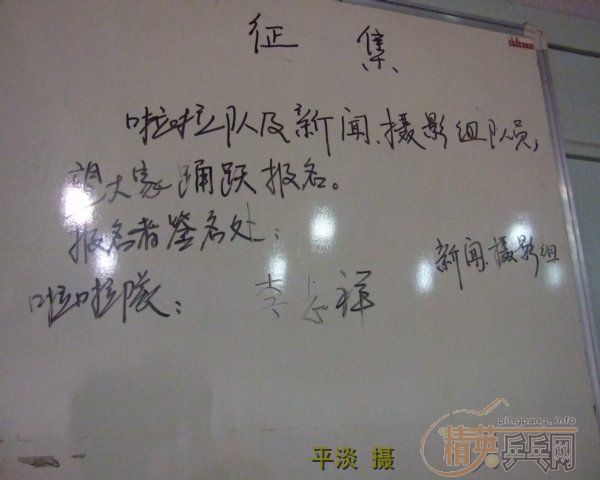 征 集
啦啦队及新闻、摄影组队员，
望大家踊跃报名。
报名者签名处：
新闻、摄影组
啦啦隊：
平淡 摄
pingpang.info
精英乒乓网